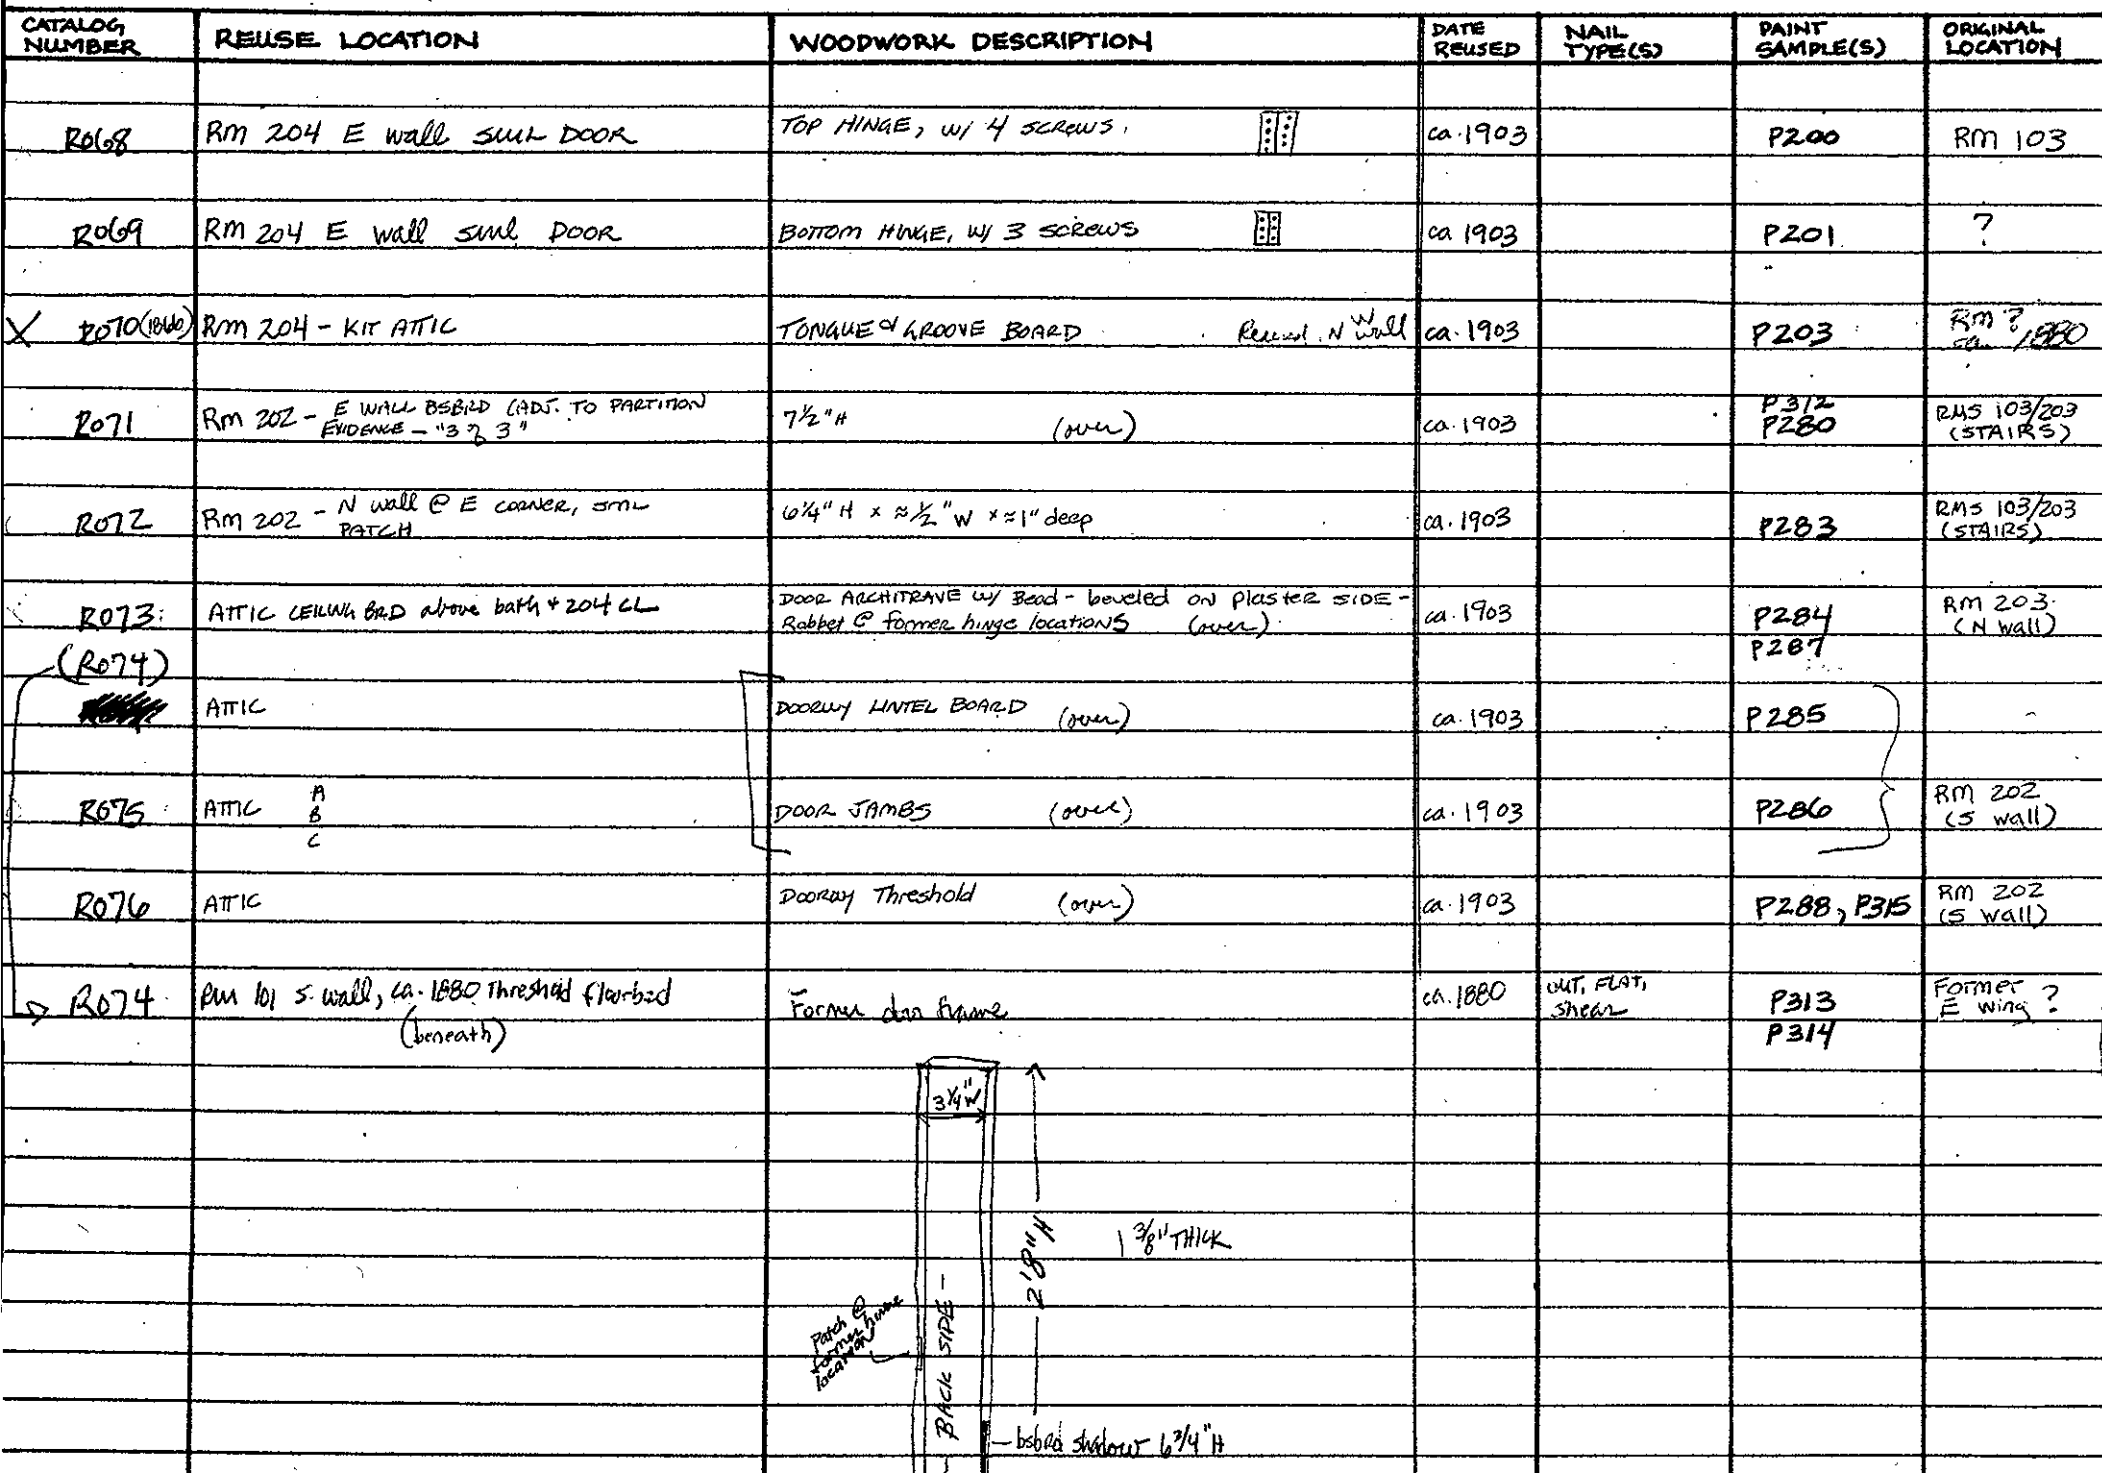 CATALOG NUMBER REUSE LOCATION WOODWORK DESCRIPTION DATE REUSED NAIL TYPE(S) PAINT SAMPLE(S) ORIGINAL LOCATION
R068 RM 204 E wall smL DOOR TOP HINGE, w/ 4 SCREWS. ca. 1903 P200 RM 103
R069 RM 204 E wall smL DOOR BOTTOM HINGE, W/ 3 SCREWS ca 1903 P201 ?
X R070 RM 204 - KIT ATTIC TONGUE & GROOVE BOARD N W Wall ca. 1903 P203 RM ? 1880
R071 RM 202 - E WALL BSBRD (ADJ. TO PARTITION
EVIDENCE - "3 of 3" 7½" H (over) ca. 1903 P312 P280 RMS 103/203 (STAIRS)
R072 RM 202 - N wall @ E CORNER, smL
PATCH 6¼" H × ≈½" W × ≈1" deep ca. 1903 P283 RMS 103/203 (STAIRS)
R073 ATTIC CEILING BRD above bath + 204 CL DOOR ARCHITRAVE W/ Bead - beveled on plaster SIDE -
Rabbet @ former hinge locations (over) ca. 1903 P284 P287 RM 203 (N wall)
(R074)
ATTIC DOORWY LINTEL BOARD (over) ca. 1903 P285 -
R075 ATTIC A B C DOOR JAMBS (over) ca. 1903 P286 RM 202 (S wall)
R076 ATTIC DOORWY Threshold (over) ca. 1903 P288, P315 RM 202 (S wall)
R074 RM 101 S. wall, ca. 1880 Threshold floorbrd
(beneath) Former door frame ca. 1880 CUT, FLAT, shear P313 P314 Former E wing ?
3¼" W
2'8" H
1 3/8" THICK
Patch @
former hinge
location
BACK SIDE -
bsbrd shadow 6¾" H